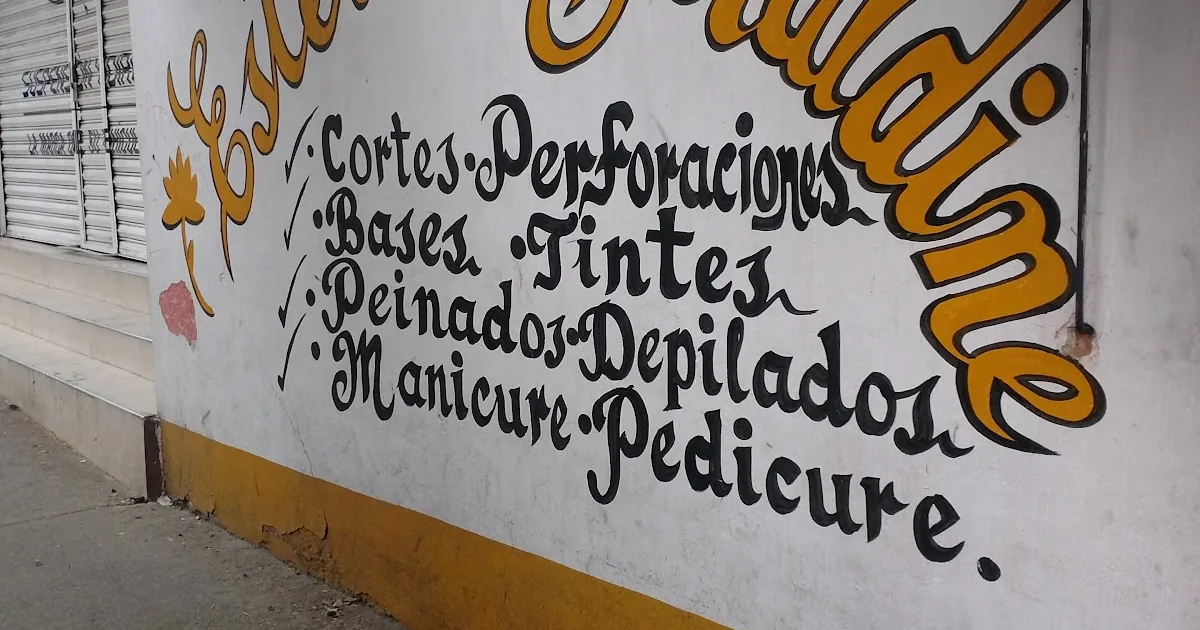 · Cortes · Perforaciones
· Bases · Tintes
· Peinados · Depilados
· Manicure · Pedicure.